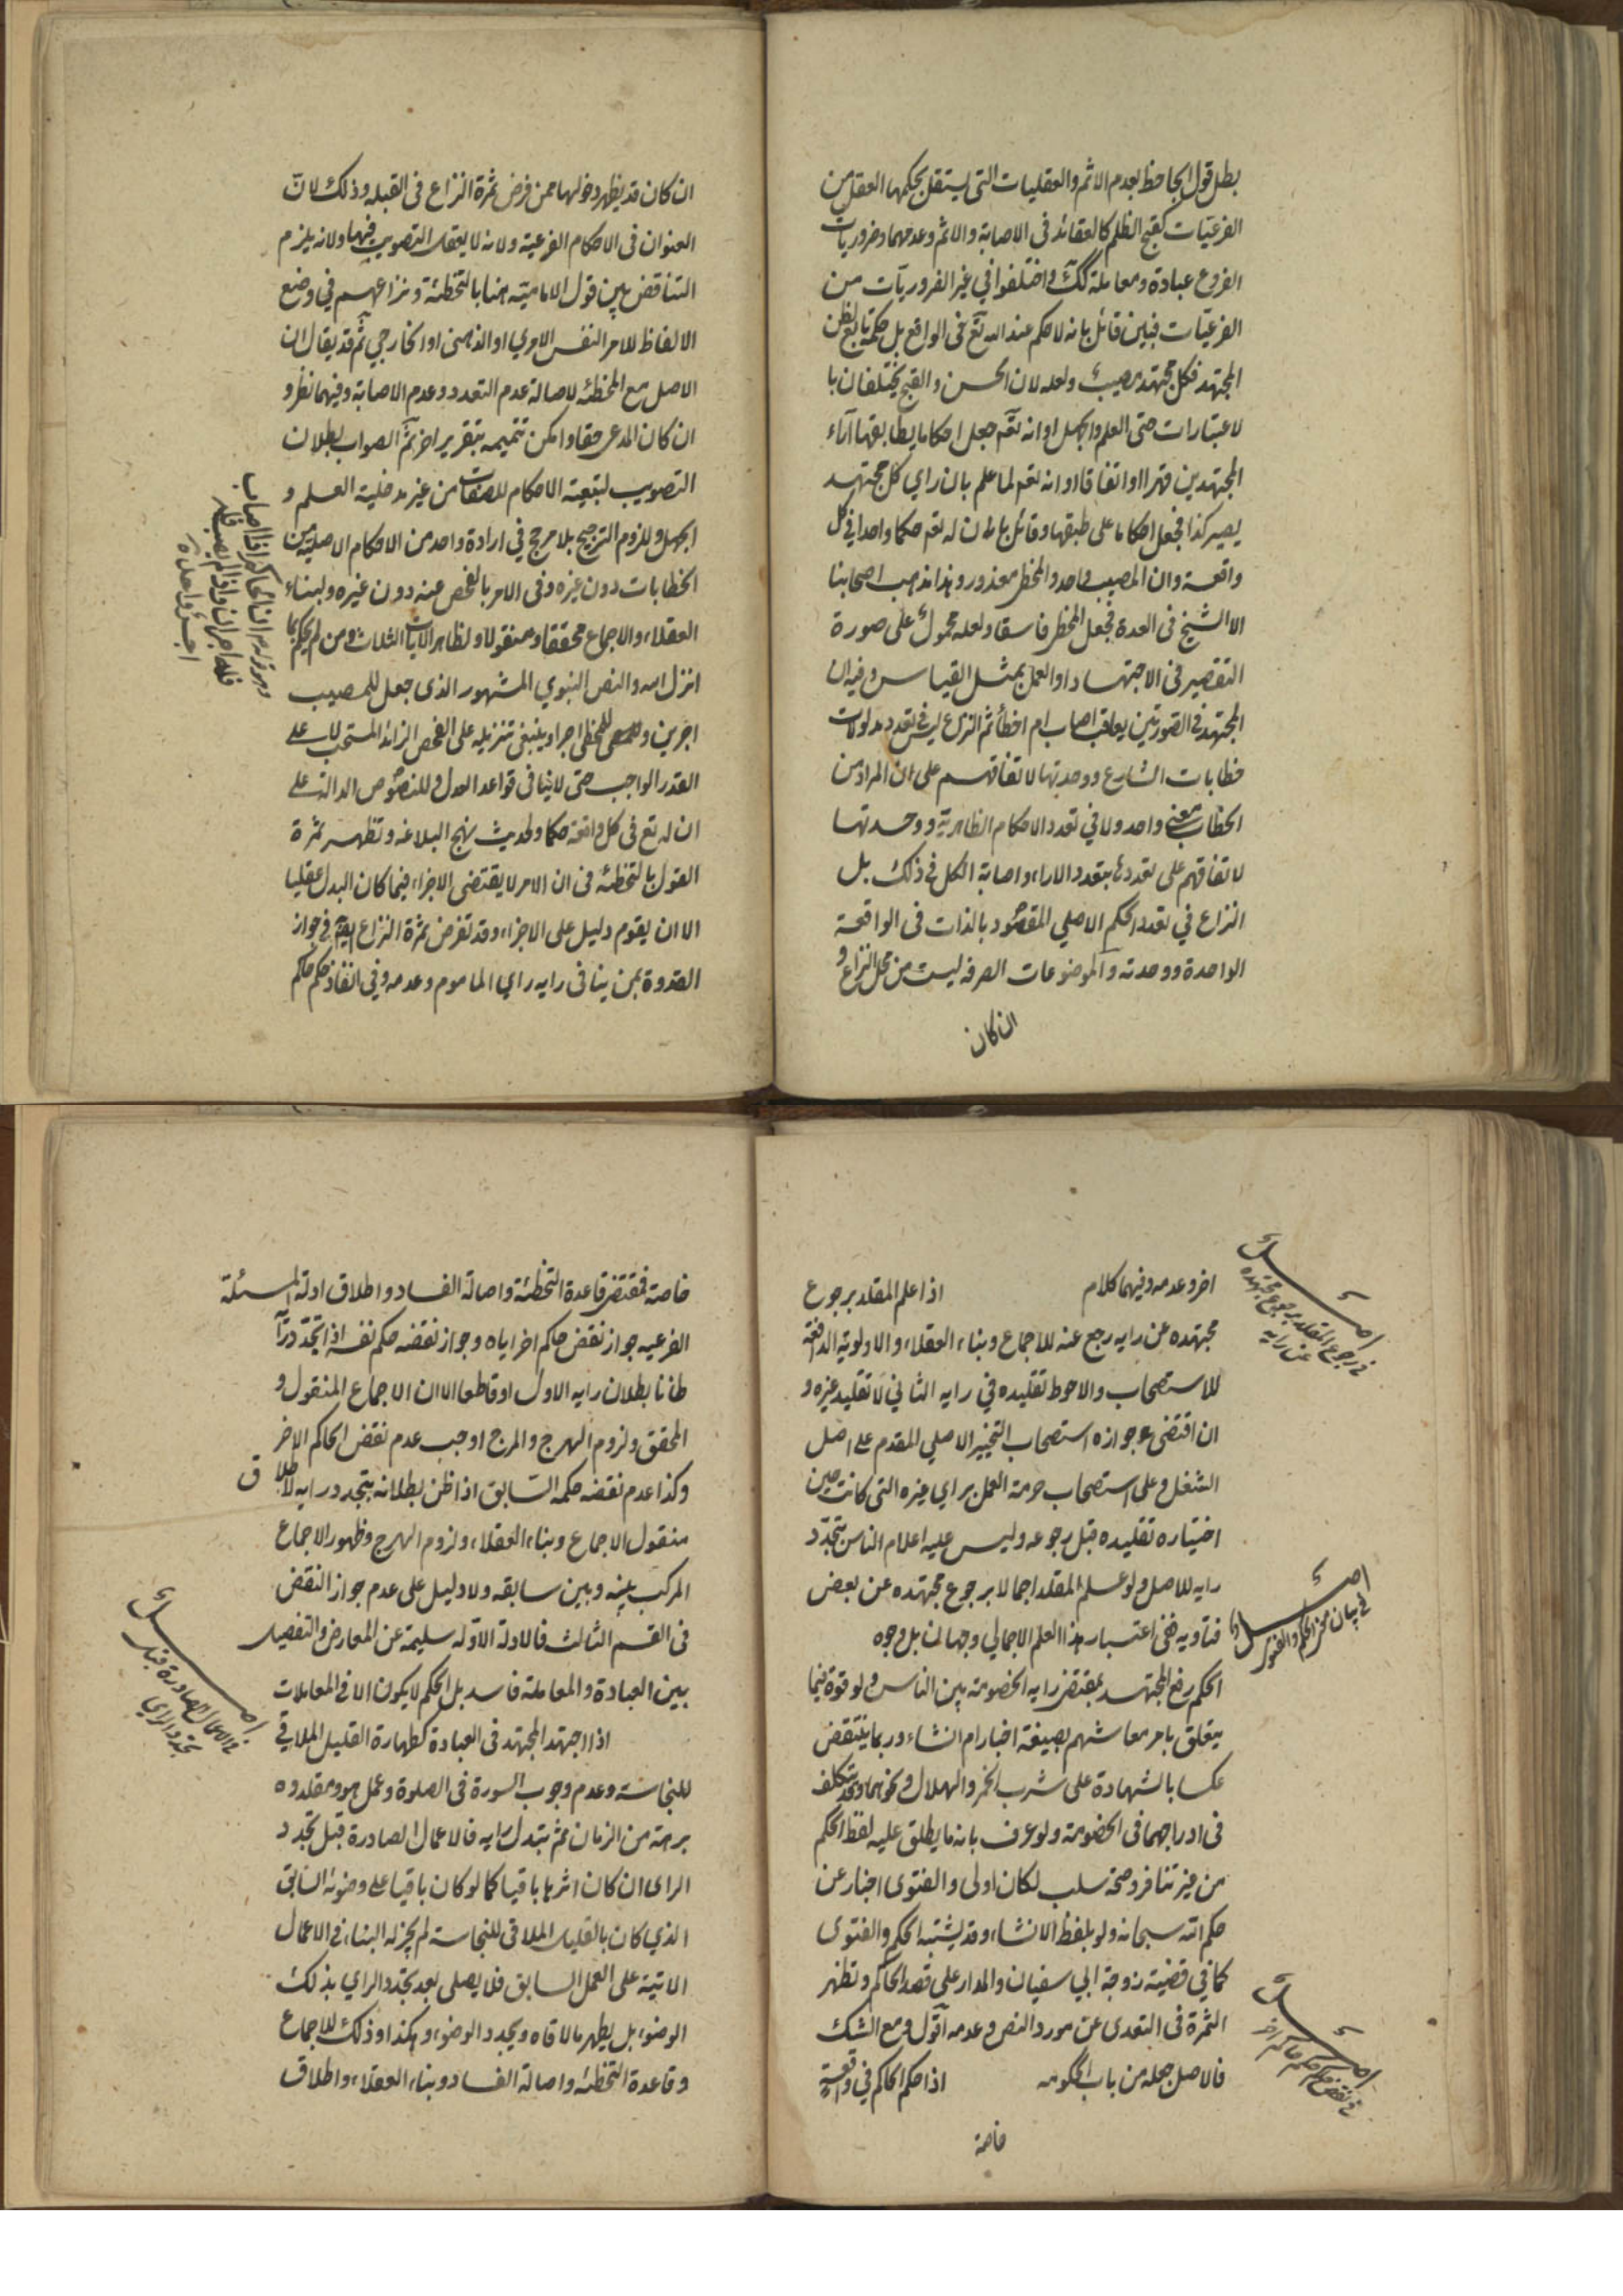 بطل قول الجاحظ بعدم الاثم والعقليات التى يستقل بحكمها العقل من
الفرعيّات كقبح الظلم كالعقائد فى الاصابة والاثم وعدمهما وضروريات
الفروع عبادة ومعاملة كك واختلفوا في غير الضروريّات من
الفرعيّات فبين قائل بانه لا حكم عند الله تع فى الواقع بل حكمه تابع لظن
المجتهد فكل مجتهد مصيب ولعله لان الحسن والقبح يختلفان با
لاعتبارات حتى العلم والجهل او انه تعم جعل احكاما يطابقها آراء
المجتهدين قهرا او اتفاقا او انه تعم لما علم بان راي كل مجتهد
يصير كذا فجعل احكاما على طبقها وقائل بان له تعم حكما واحدا في كل
واقعة وان المصيب واحد والمخطئ معذور وهذا مذهب اصحابنا
الا الشيخ فى العدة فجعل المخطئ فاسقا ولعله محمول على صورة
التقصير فى الاجتهاد او العمل بمثل القياس وفيه ان
المجتهد فى الصورتين يعاقب اصاب ام اخطأ ثم النزاع ليس في تعدد مدلولات
خطابات الشارع ووحدتها لاتفاقهم على ان المراد من
الخطاب معنى واحد ولا في تعدد الاحكام الظاهرية ووحدتها
لاتفاقهم على تعددها بتعدد الاراء واصابة الكل فى ذلك بل
النزاع في تعدد الحكم الاصلي المقصود بالذات فى الواقعة
الواحدة ووحدته والموضوعات الصرفة ليست من محل النزاع و
ان كان
ان كان قد يظهر دخولها ممن فرض ثمرة النزاع فى القبلة وذلك لانّ
العنوان فى الاحكام الفرعية ولانه لا يعقل التصويب فيها ولانه يلزم
التناقض بين قول الامامية هنا بالتخطئة ونزاعهم في وضع
الالفاظ للامر النفس الامري او الذهنى او الخارجي ثم قد يقال ان
الاصل مع المخطئه لاصالة عدم التعدد وعدم الاصابة وفيهما نظر و
ان كان المدعى حقا وامكن تتميمه بتقرير اخر ثم الصواب بطلان
التصويب لتبعية الاحكام للصفات من غير مدخلية العلم و
الجهل وللزوم الترجيح بلا مرجح في ارادة واحد من الاحكام الاصلية من
الخطابات دون غيره وفى الامر بالفحص عنه دون غيره ولبناء
العقلاء والاجماع محققا ومنقولا ولظاهر الايات الثلاث ومن لم يحكم بما
انزل الله والنص النبوي المشهور الذى جعل للمصيب
اجرين وللمخطى اجرا وينبغى تنزيله على الفحص الزائد المستحب على
القدر الواجب حتى لا ينافى قواعد العدل وللنصوص الدالة على
ان له تع فى كل واقعة حكما ولحديث نهج البلاغه وتظهر ثمرة
القول بالتخطئه فى ان الامر لا يقتضى الاجزاء فيما كان البدل عقليا
الا ان يقوم دليل على الاجزاء وقد تفرض ثمرة النزاع ايضا فى جواز
القدوة بمن ينافى رايه راي الماموم وعدمه وفي انفاذ حكم حاكم
وهو قوله ان الحاكم اذا اصاب
فله اجران واذا لم يصب فله
اجر واحد
اخر وعدمه وفيهما كلام اذا علم المقلد برجوع
مجتهده عن رايه رجع عنه للاجماع وبناء العقلاء والاولوية الدافعة
للاستصحاب والاحوط تقليده في رايه الثاني لا تقليد غيره و
ان اقتضى جوازه استصحاب التخيير الاصلي المقدم على اصل
الشغل وعلى استصحاب حرمة العمل براي غيره التى كانت حين
اختياره تقليده قبل رجوعه وليس عليه اعلام الناس بتجدّد
رايه للاصل ولو علم المقلد اجمالا برجوع مجتهده عن بعض
فتاويه ففى اعتبار هذا العلم الاجمالي وجهان بل وجوه
الحكم رفع المجتهد بمقتضى رايه الخصومة بين الناس ولو قوة فيما
يتعلق بامر معاشهم بصيغة اخبار ام انشاء وربما ينتقض
عكسا بالشهادة على شرب الخمر والهلال ونحوهما وقد يتكلف
فى ادراجهما فى الخصومة ولو عرف بانه ما يطلق عليه لفظ الحكم
من غير تنافر وصحة سلب لكان اولى والفتوى اخبار عن
حكم الله سبحانه ولو بلفظ الانشاء وقد يشتبه الحكم والفتوى
كما في قضية زوجة ابي سفيان والمدار على قصد الحاكم وتظهر
الثمرة فى التعدى عن مورد النص وعدمه اقول ومع الشك
فالاصل جعله من باب الحكومه اذا حكم الحاكم في واقعة
خاصة
اصل
في رجوع المقلد برجوع مجتهده
عن رايه
اصل
في بيان معنى الحكم والفتوى
اصل
في نقض حكم حاكم اخر
خاصة فمقتضى قاعدة التخطئة واصالة الفساد واطلاق ادلة المسئلة
الفرعيه جواز نقض حاكم اخر اياه وجواز نقضه حكم نفسه اذا تجدّد رآ
ظانا بطلان رايه الاول او قاطعا الا ان الاجماع المنقول و
المحقق ولزوم الهرج والمرج اوجب عدم نقض الحاكم الاخر
وكذا عدم نقضه حكمه السّابق اذا ظن بطلانه بتجدد رايه لاطلاق
منقول الاجماع وبناء العقلاء ولزوم الهرج وظهور الاجماع
المركب بينه وبين سابقه ولا دليل على عدم جواز النقض
فى القسم الثالث فالادلة الاوّله سليمة عن المعارض والتفصيل
بين العبادة والمعاملة فاسد بل الحكم لا يكون الا فى المعاملات
اذا اجتهد المجتهد فى العبادة كطهارة القليل الملاقي
للنجاسة وعدم وجوب السورة فى الصلوة وعمل هو ومقلدوه
برهة من الزمان ثم تبدل رايه فالاعمال الصادرة قبل تجدد
الراى ان كان اثرها باقيا كما لو كان باقيا على وضوئه السّابق
الذي كان بالقليل الملاقى للنجاسة لم يجز له البناء فى الاعمال
الاتية على العمل السابق فلا يصلى بعد تجدّد الراي بذلك
الوضوء بل يطهر ما لاقاه ويجدد الوضوء وهكذا وذلك للاجماع
وقاعدة التخطئه واصالة الفساد وبناء العقلاء واطلاق
اصل
في الاعمال الصادرة قبل
تجدد الراي